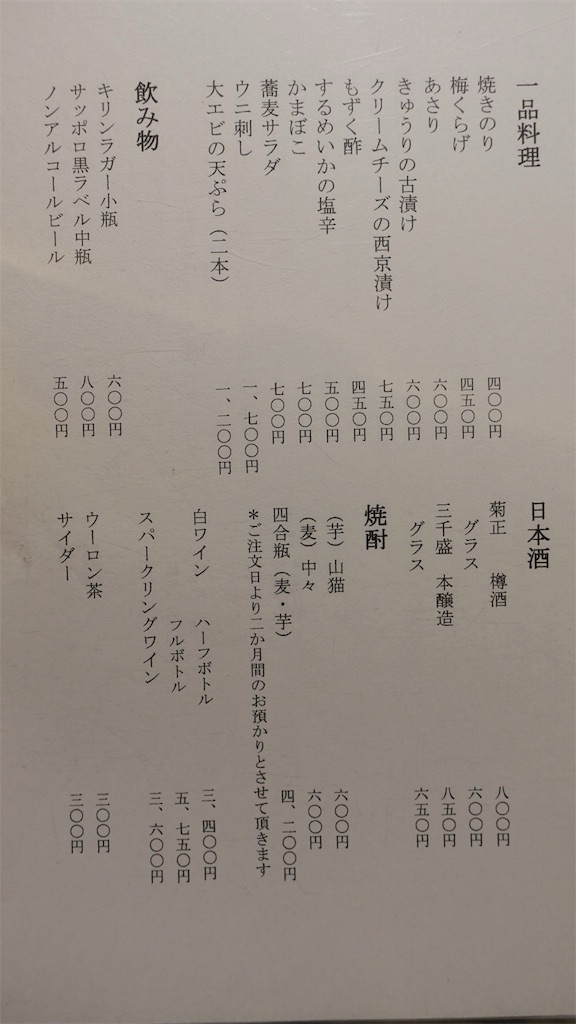 一品料理
焼きのり 四〇〇円
梅くらげ 四五〇円
あさり 六〇〇円
きゅうりの古漬け 六〇〇円
クリームチーズの西京漬け 七五〇円
もずく酢 四五〇円
するめいかの塩辛 五〇〇円
かまぼこ 七〇〇円
蕎麦サラダ 七〇〇円
ウニ刺し 一、七〇〇円
大エビの天ぷら（二本） 一、二〇〇円
飲み物
キリンラガー小瓶 六〇〇円
サッポロ黒ラベル中瓶 八〇〇円
ノンアルコールビール 五〇〇円
日本酒
菊正 樽酒 八〇〇円
グラス 六〇〇円
三千盛 本醸造 八五〇円
グラス 六五〇円
焼酎
（芋）山猫 六〇〇円
（麦）中々 六〇〇円
四合瓶（麦・芋） 四、二〇〇円
＊ご注文日より二か月間のお預かりとさせて頂きます
白ワイン ハーフボトル 三、四〇〇円
フルボトル 五、七五〇円
スパークリングワイン 三、六〇〇円
ウーロン茶 三〇〇円
サイダー 三〇〇円